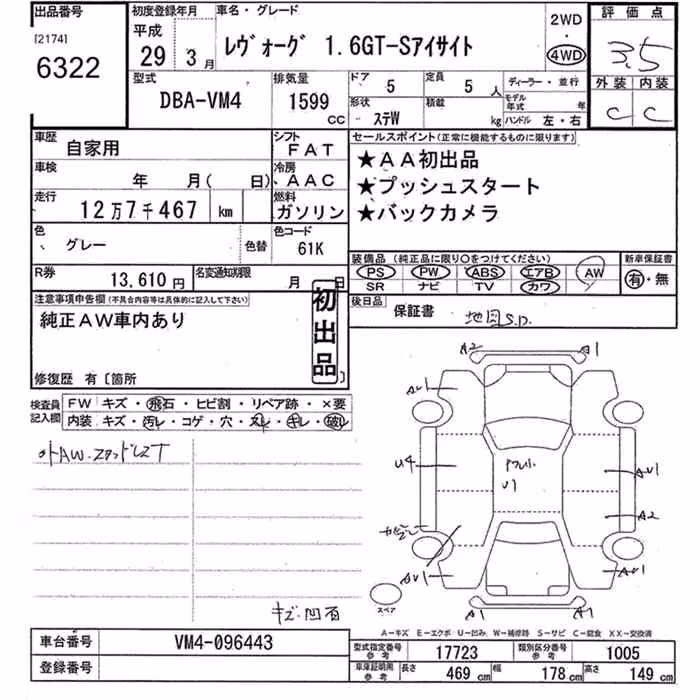 出品番号
[2174]
6322
初度登録年月
平成
29年 3月
車名・グレード
レヴォーグ 1.6GT-Sアイサイト
2WD
・
4WD
評価点
3.5
外装 内装
C C
型式
DBA-VM4
排気量
1599
CC
ドア 5
定員 5人
形状 ステW
積載 kg
ディーラー・並行
モデル年式 年
ハンドル 左・右
車歴 自家用
シフト FAT
車検 年 月( 日)
冷房 AAC
走行 12万7千467 km
燃料 ガソリン
色 グレー
色替
色コード 61K
R券 13,610円
名変通知期限 月 日
セールスポイント(正常に機能するものに限ります)
★AA初出品
★プッシュスタート
★バックカメラ
装備品(純正品に限り○をつけてください)
PS PW ABS エアB AW
SR ナビ TV カワ
新車保証書
有・無
後日品 保証書 地図S.D.
注意事項申告欄(不具合内容等は具体的に記入して下さい)
純正AW車内あり
初出品
修復歴 有〔箇所 〕
検査員記入欄
FW キズ・飛石・ヒビ割・リペア跡・×要
内装 キズ・汚レ・コゲ・穴・スレ・キレ・破レ
外AW.スタッドレスT
キズ・凹有
A2 A1
AU1
U4
U1
AU1
A2
AU1
AU1
A1 A1
スペア
A-キズ E-エクボ U-凹み W-補修跡 S-サビ C-腐食 XX-交換済
車台番号 VM4-096443
登録番号
型式指定番号 参考 17723
類別区分番号 参考 1005
車庫証明用 参考 長さ 469 cm 幅 178 cm 高さ 149 cm